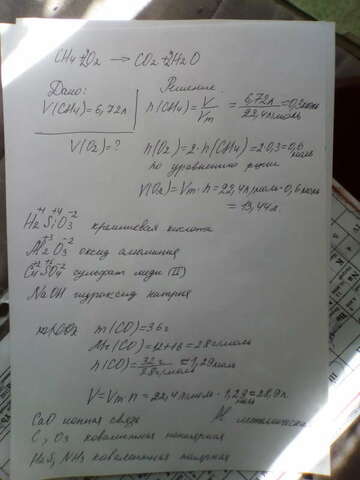 CH4+2O2 → CO2+2H2O
Дано: Решение
V(CH4)=6,72л n(CH4)=V/Vm = 6,72л/22,4л/моль =0,3моль
V(O2)=? n(O2)=2·n(CH4)=2·0,3=0,6 моль
по уравнению р-ции
V(O2)=Vm·n=22,4л/моль·0,6моль
=13,44л.
H2+1Si+4O3-2 кремниевая кислота
Al2+3O3-2 оксид алюминия
Cu+2S+6O4-2 сульфат меди (II)
NaOH гидроксид натрия
m(CO)=36г
Mr(CO)=12+16=28г/моль
n(CO)=32г/28г/моль=1,29моль
V=Vm·n=22,4л/моль·1,29моль=28,9л
CaO ионная связь металлическая
C, O3 ковалентная неполярная
H2S, NH3 ковалентная полярная